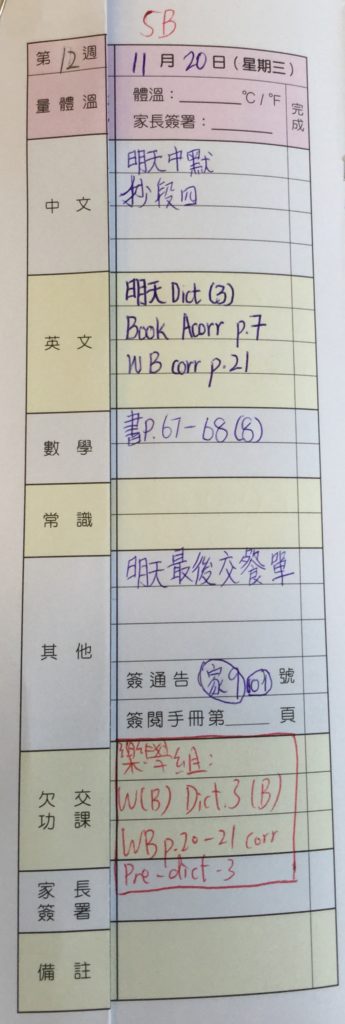 5B
第12週 11月20日(星期三)
量體溫 體溫:______℃/℉ 完成
家長簽署:______
中文 明天中默
抄段四
英文 明天Dict (3)
Book A corr p.7
WB corr p.21
數學 書P.67-68(8)
常識
其他 明天最後交餐單
簽通告 家9 01 號
簽閱手冊第____頁
欠交功課 樂學組:
W(B) Dict.3 (B)
WB p.20-21 corr
Pre-dict-3
家長簽署
備註